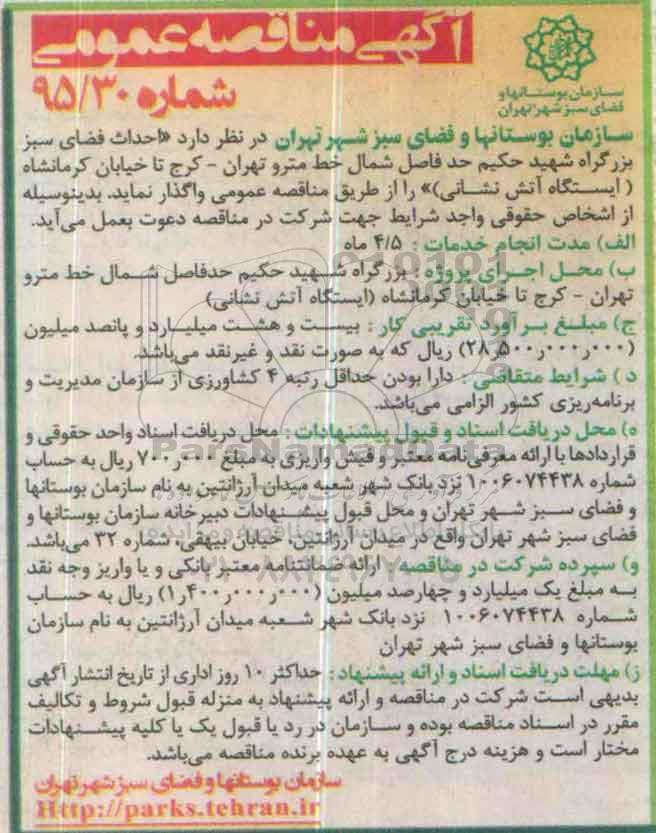 آگهی مناقصه عمومی
شماره ۹۵/۳۰
سازمان بوستانها و
فضای سبز شهر تهران
سازمان بوستانها و فضای سبز شهر تهران در نظر دارد «احداث فضای سبز
بزرگراه شهید حکیم حد فاصل شمال خط مترو تهران - کرج تا خیابان کرمانشاه
( ایستگاه آتش نشانی)» را از طریق مناقصه عمومی واگذار نماید. بدینوسیله
از اشخاص حقوقی واجد شرایط جهت شرکت در مناقصه دعوت بعمل می‌آید.
الف) مدت انجام خدمات : ۴/۵ ماه
ب) محل اجرای پروژه : بزرگراه شهید حکیم حدفاصل شمال خط مترو
تهران - کرج تا خیابان کرمانشاه (ایستگاه آتش نشانی)
ج) مبلغ برآورد تقریبی کار : بیست و هشت میلیارد و پانصد میلیون
(۲۸٫۵۰۰٫۰۰۰٫۰۰۰) ریال که به صورت نقد و غیرنقد می‌باشد.
د ) شرایط متقاضی : دارا بودن حداقل رتبه ۴ کشاورزی از سازمان مدیریت و
برنامه‌ریزی کشور الزامی می‌باشد.
ه) محل دریافت اسناد و قبول پیشنهادات : محل دریافت اسناد واحد حقوقی و
قراردادها با ارائه معرفی‌نامه معتبر و فیش واریزی به مبلغ ۷۰۰٫۰۰۰ ریال به حساب
شماره ۱۰۰۶۰۷۴۴۳۸ نزد بانک شهر شعبه میدان آرژانتین به نام سازمان بوستانها
و فضای سبز شهر تهران و محل قبول پیشنهادات دبیرخانه سازمان بوستانها و
فضای سبز شهر تهران واقع در میدان آرژانتین، خیابان بیهقی، شماره ۳۲ می‌باشد.
و) سپرده شرکت در مناقصه : ارائه ضمانتنامه معتبر بانکی و یا واریز وجه نقد
به مبلغ یک میلیارد و چهارصد میلیون (۱٫۴۰۰٫۰۰۰٫۰۰۰) ریال به حساب
شماره ۱۰۰۶۰۷۴۴۳۸ نزد بانک شهر شعبه میدان آرژانتین به نام سازمان
بوستانها و فضای سبز شهر تهران
ز) مهلت دریافت اسناد و ارائه پیشنهاد : حداکثر ۱۰ روز اداری از تاریخ انتشار آگهی
بدیهی است شرکت در مناقصه و ارائه پیشنهاد به منزله قبول شروط و تکالیف
مقرر در اسناد مناقصه بوده و سازمان در رد یا قبول یک یا کلیه پیشنهادات
مختار است و هزینه درج آگهی به عهده برنده مناقصه می‌باشد.
سازمان بوستانها و فضای سبز شهر تهران
Http://parks.tehran.ir